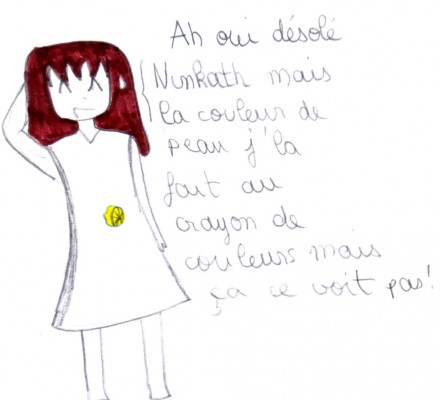 Ah oui désolé
Nunkath mais
la couleur de
peau j'la
fait au
crayon de
couleurs mais
ça ce voit pas!